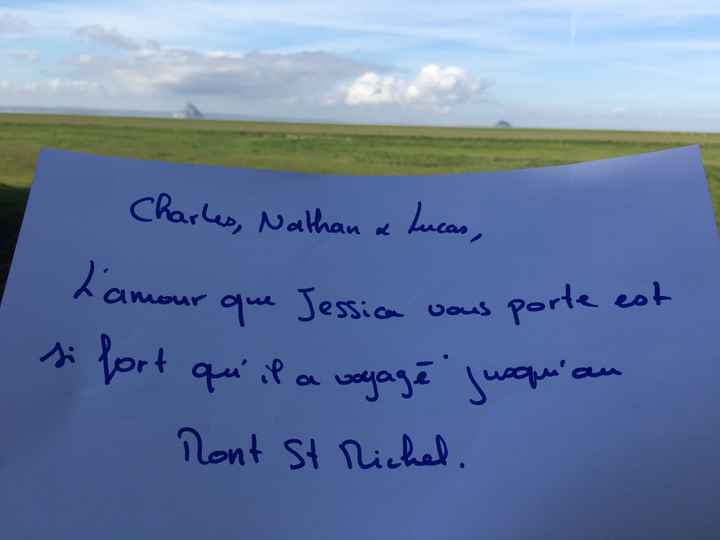 Charles, Nathan & Lucas,
L'amour que Jessica vous porte est
si fort qu'il a voyagé jusqu'au
Mont St Michel.